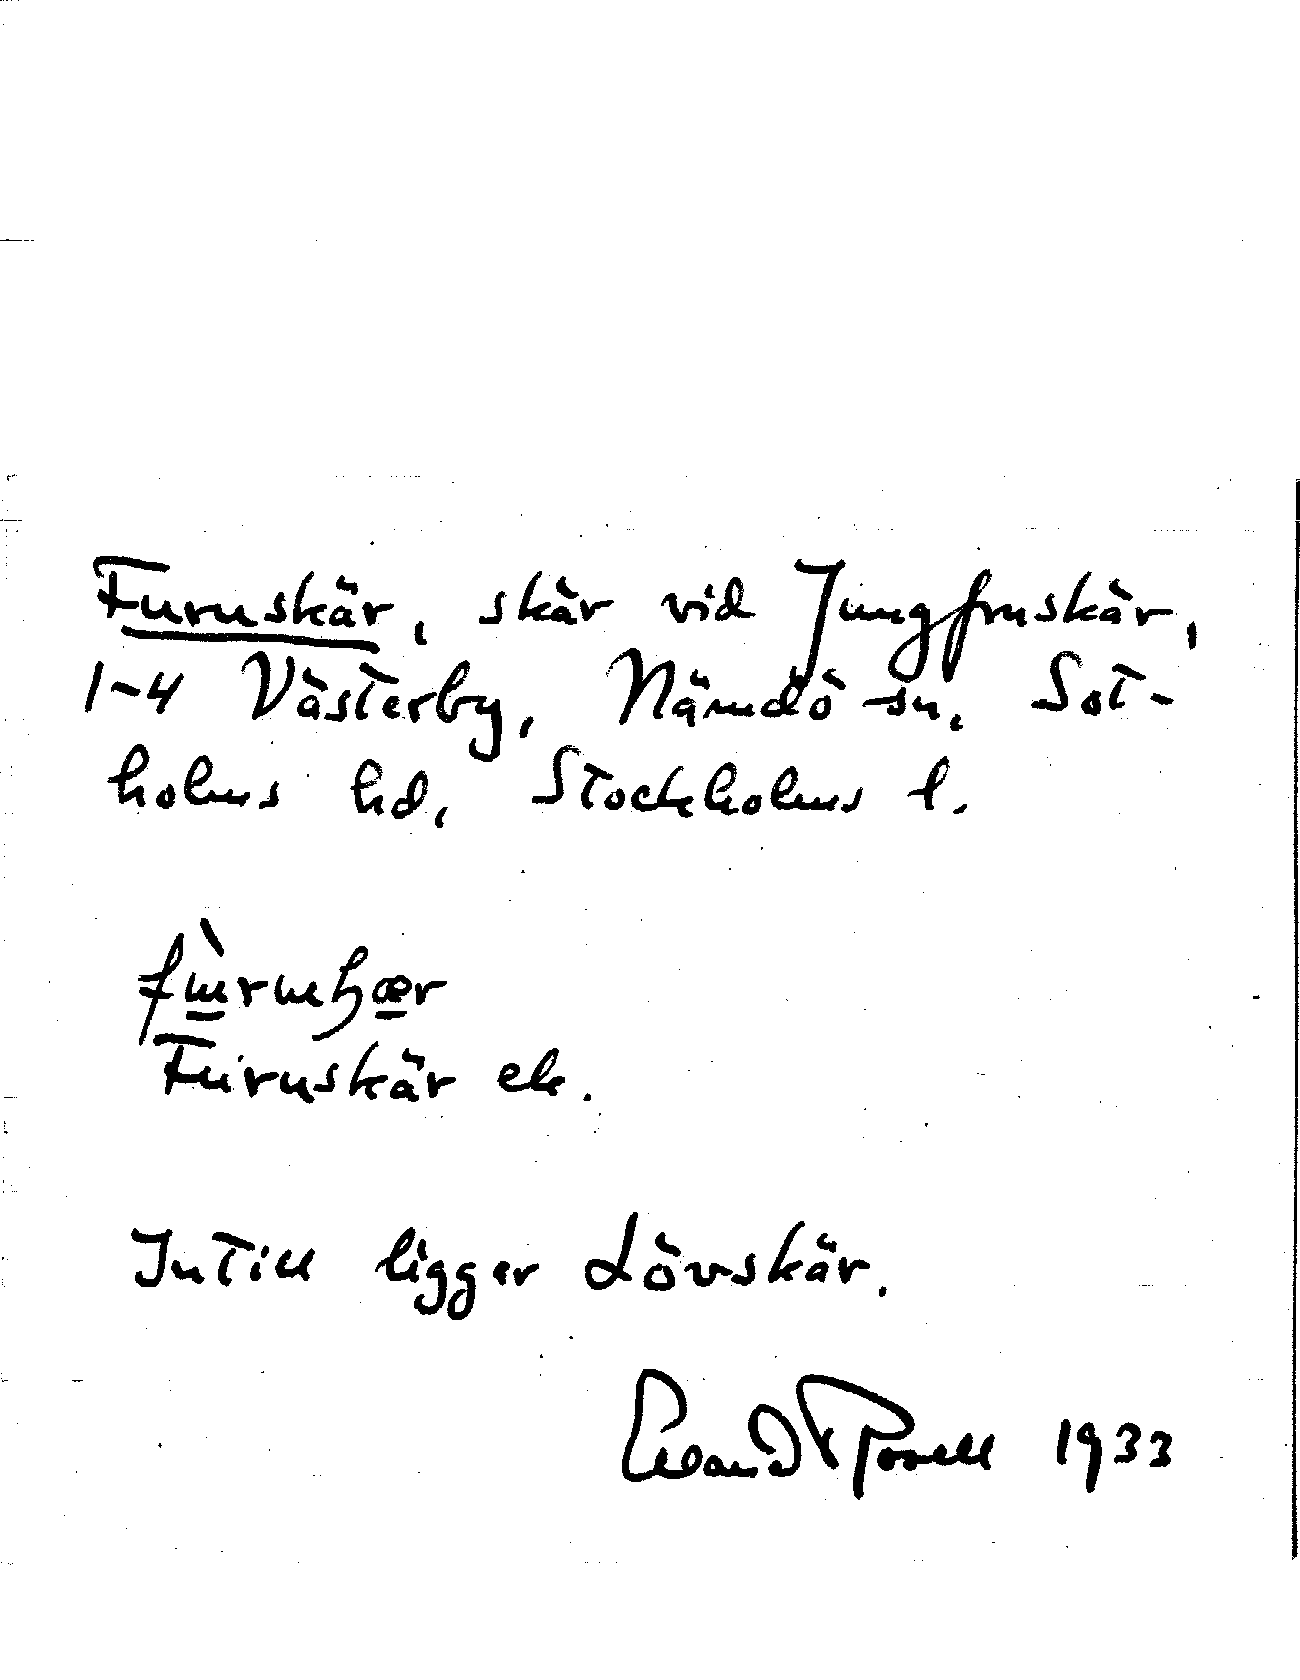 Furuskär, skär vid Jungfruskär,
1-4 Västerby, Nämdö sn, Sot-
holms hd, Stockholms l.
Furuskär ek.
Intill ligger Lövskär.
1933